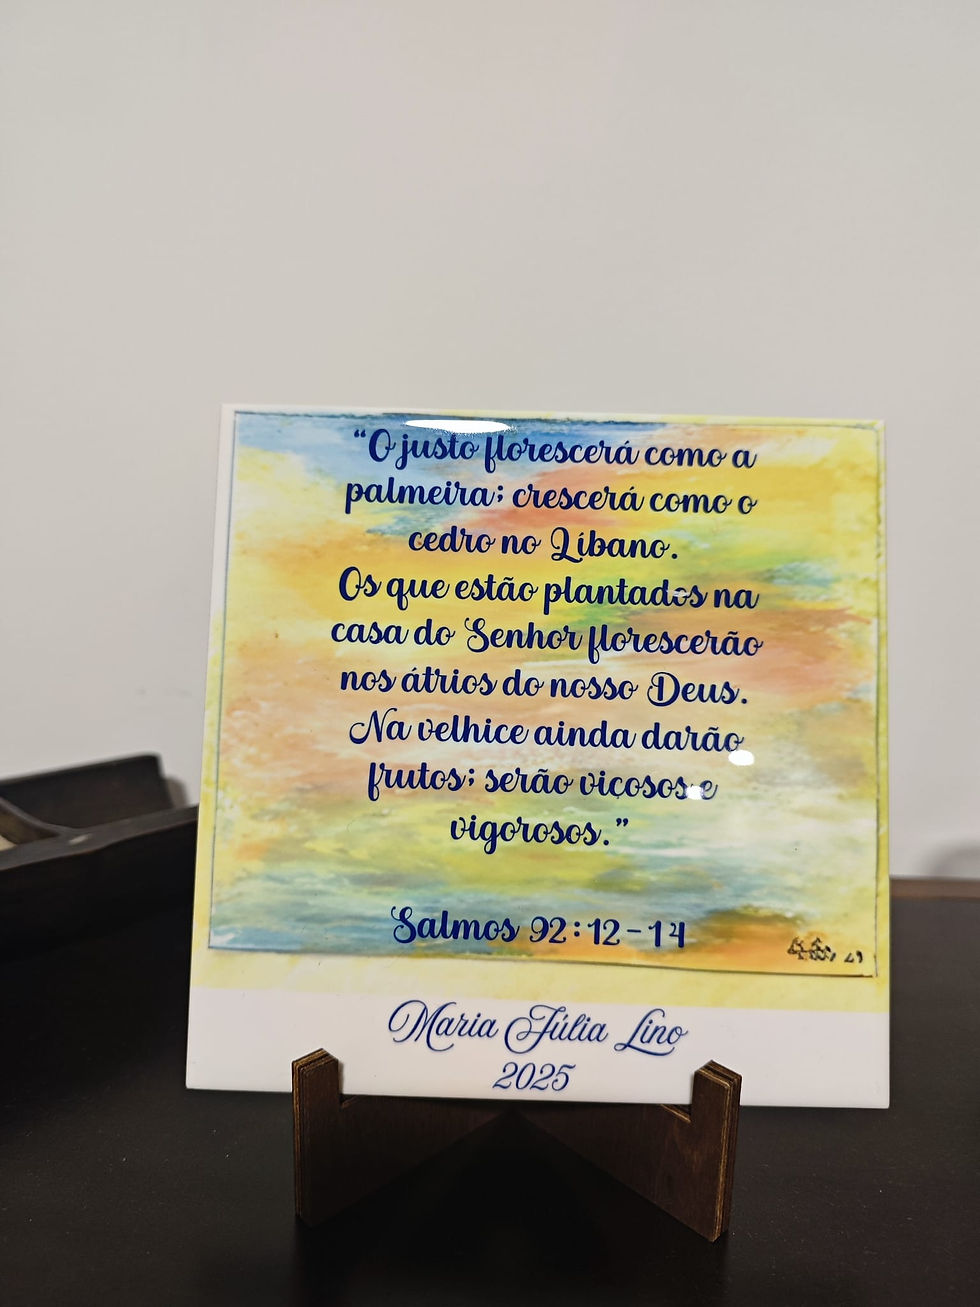 “O justo florescerá como a
palmeira; crescerá como o
cedro no Líbano.
Os que estão plantados na
casa do Senhor florescerão
nos átrios do nosso Deus.
Na velhice ainda darão
frutos; serão viçosos e
vigorosos.”
Salmos 92:12-14
Maria Júlia Lino
2025